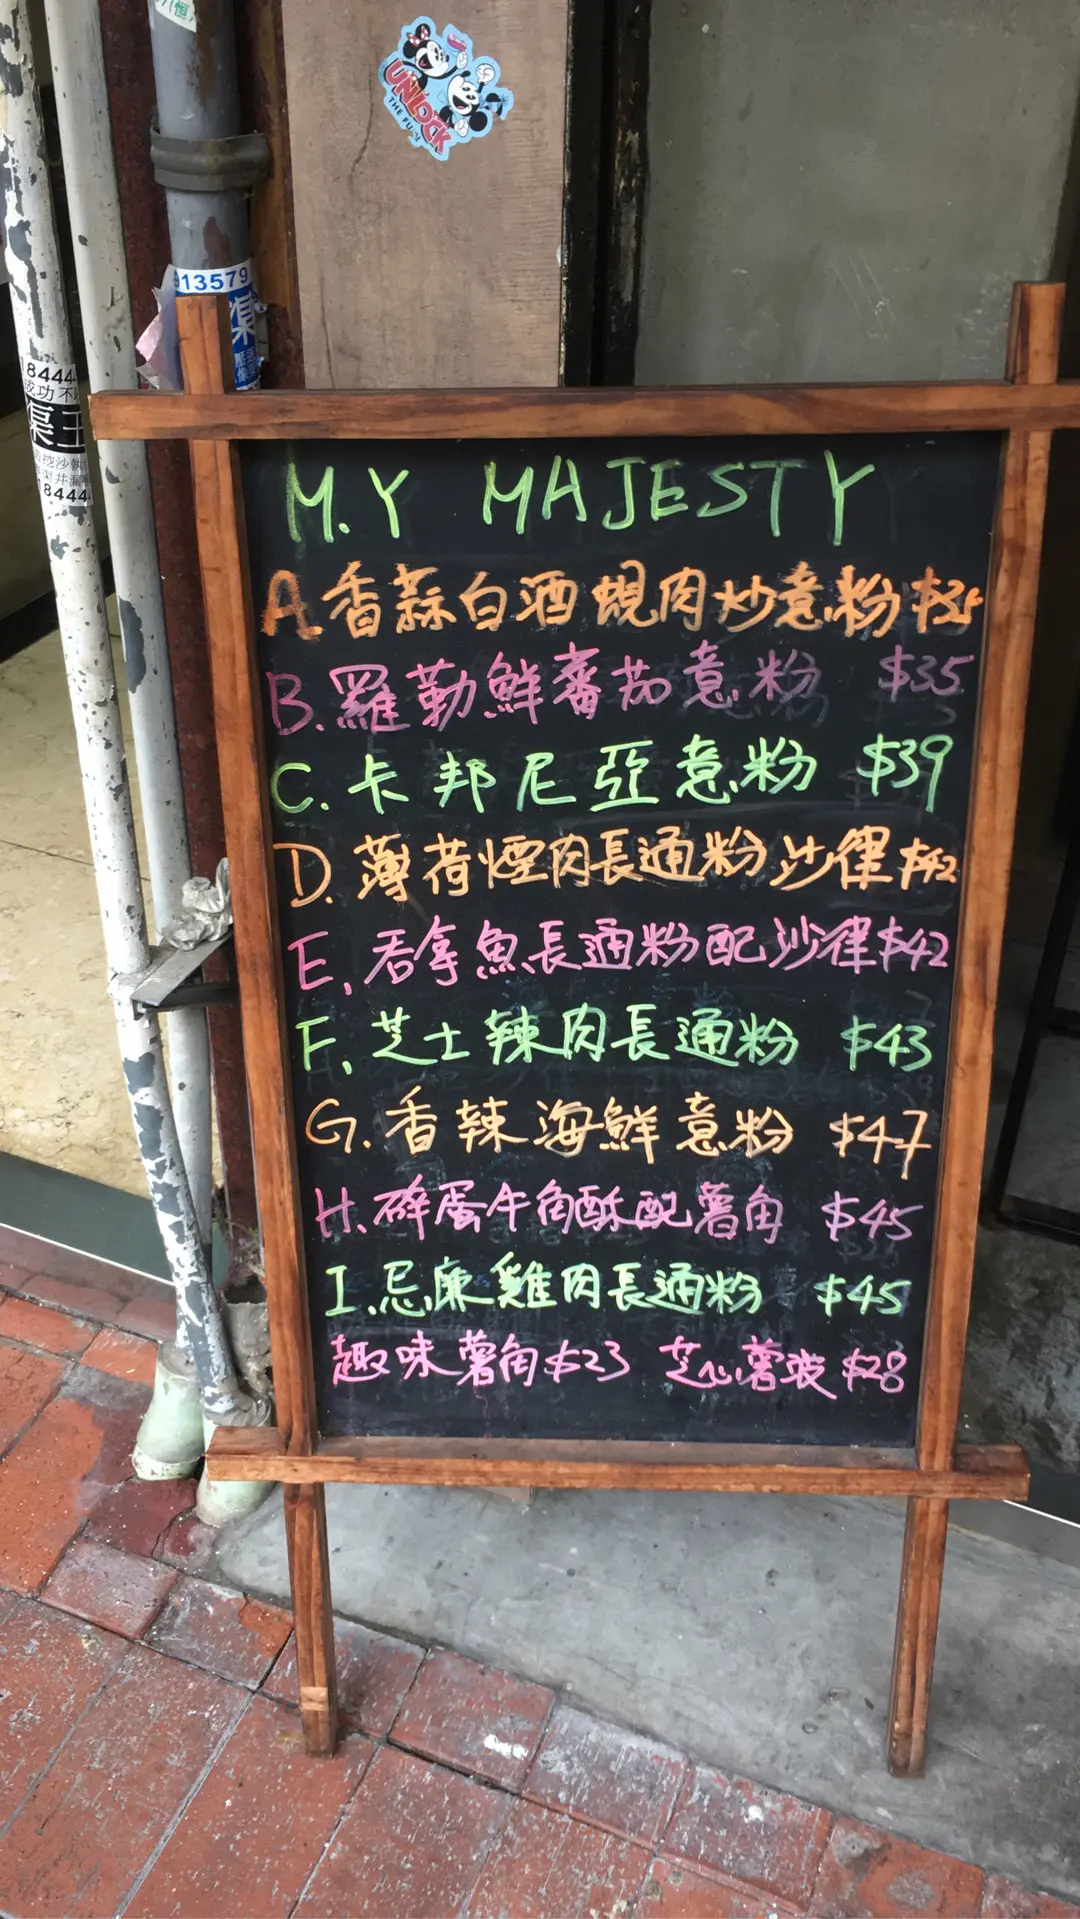 UNLOCK
THE FUN
913579
8444
成功不
渠王
8444
M.Y MAJESTY
A.香蒜白酒蜆肉炒意粉 $35
B.羅勒鮮蕃茄意粉 $35
C.卡邦尼亞意粉 $39
D.薄荷煙肉長通粉沙律 $42
E.吞拿魚長通粉配沙律 $42
F.芝士辣肉長通粉 $43
G.香辣海鮮意粉 $47
H.碎蛋牛角酥配薯角 $45
I.忌廉雞肉長通粉 $45
趣味薯角 $23 芝心薯波 $28